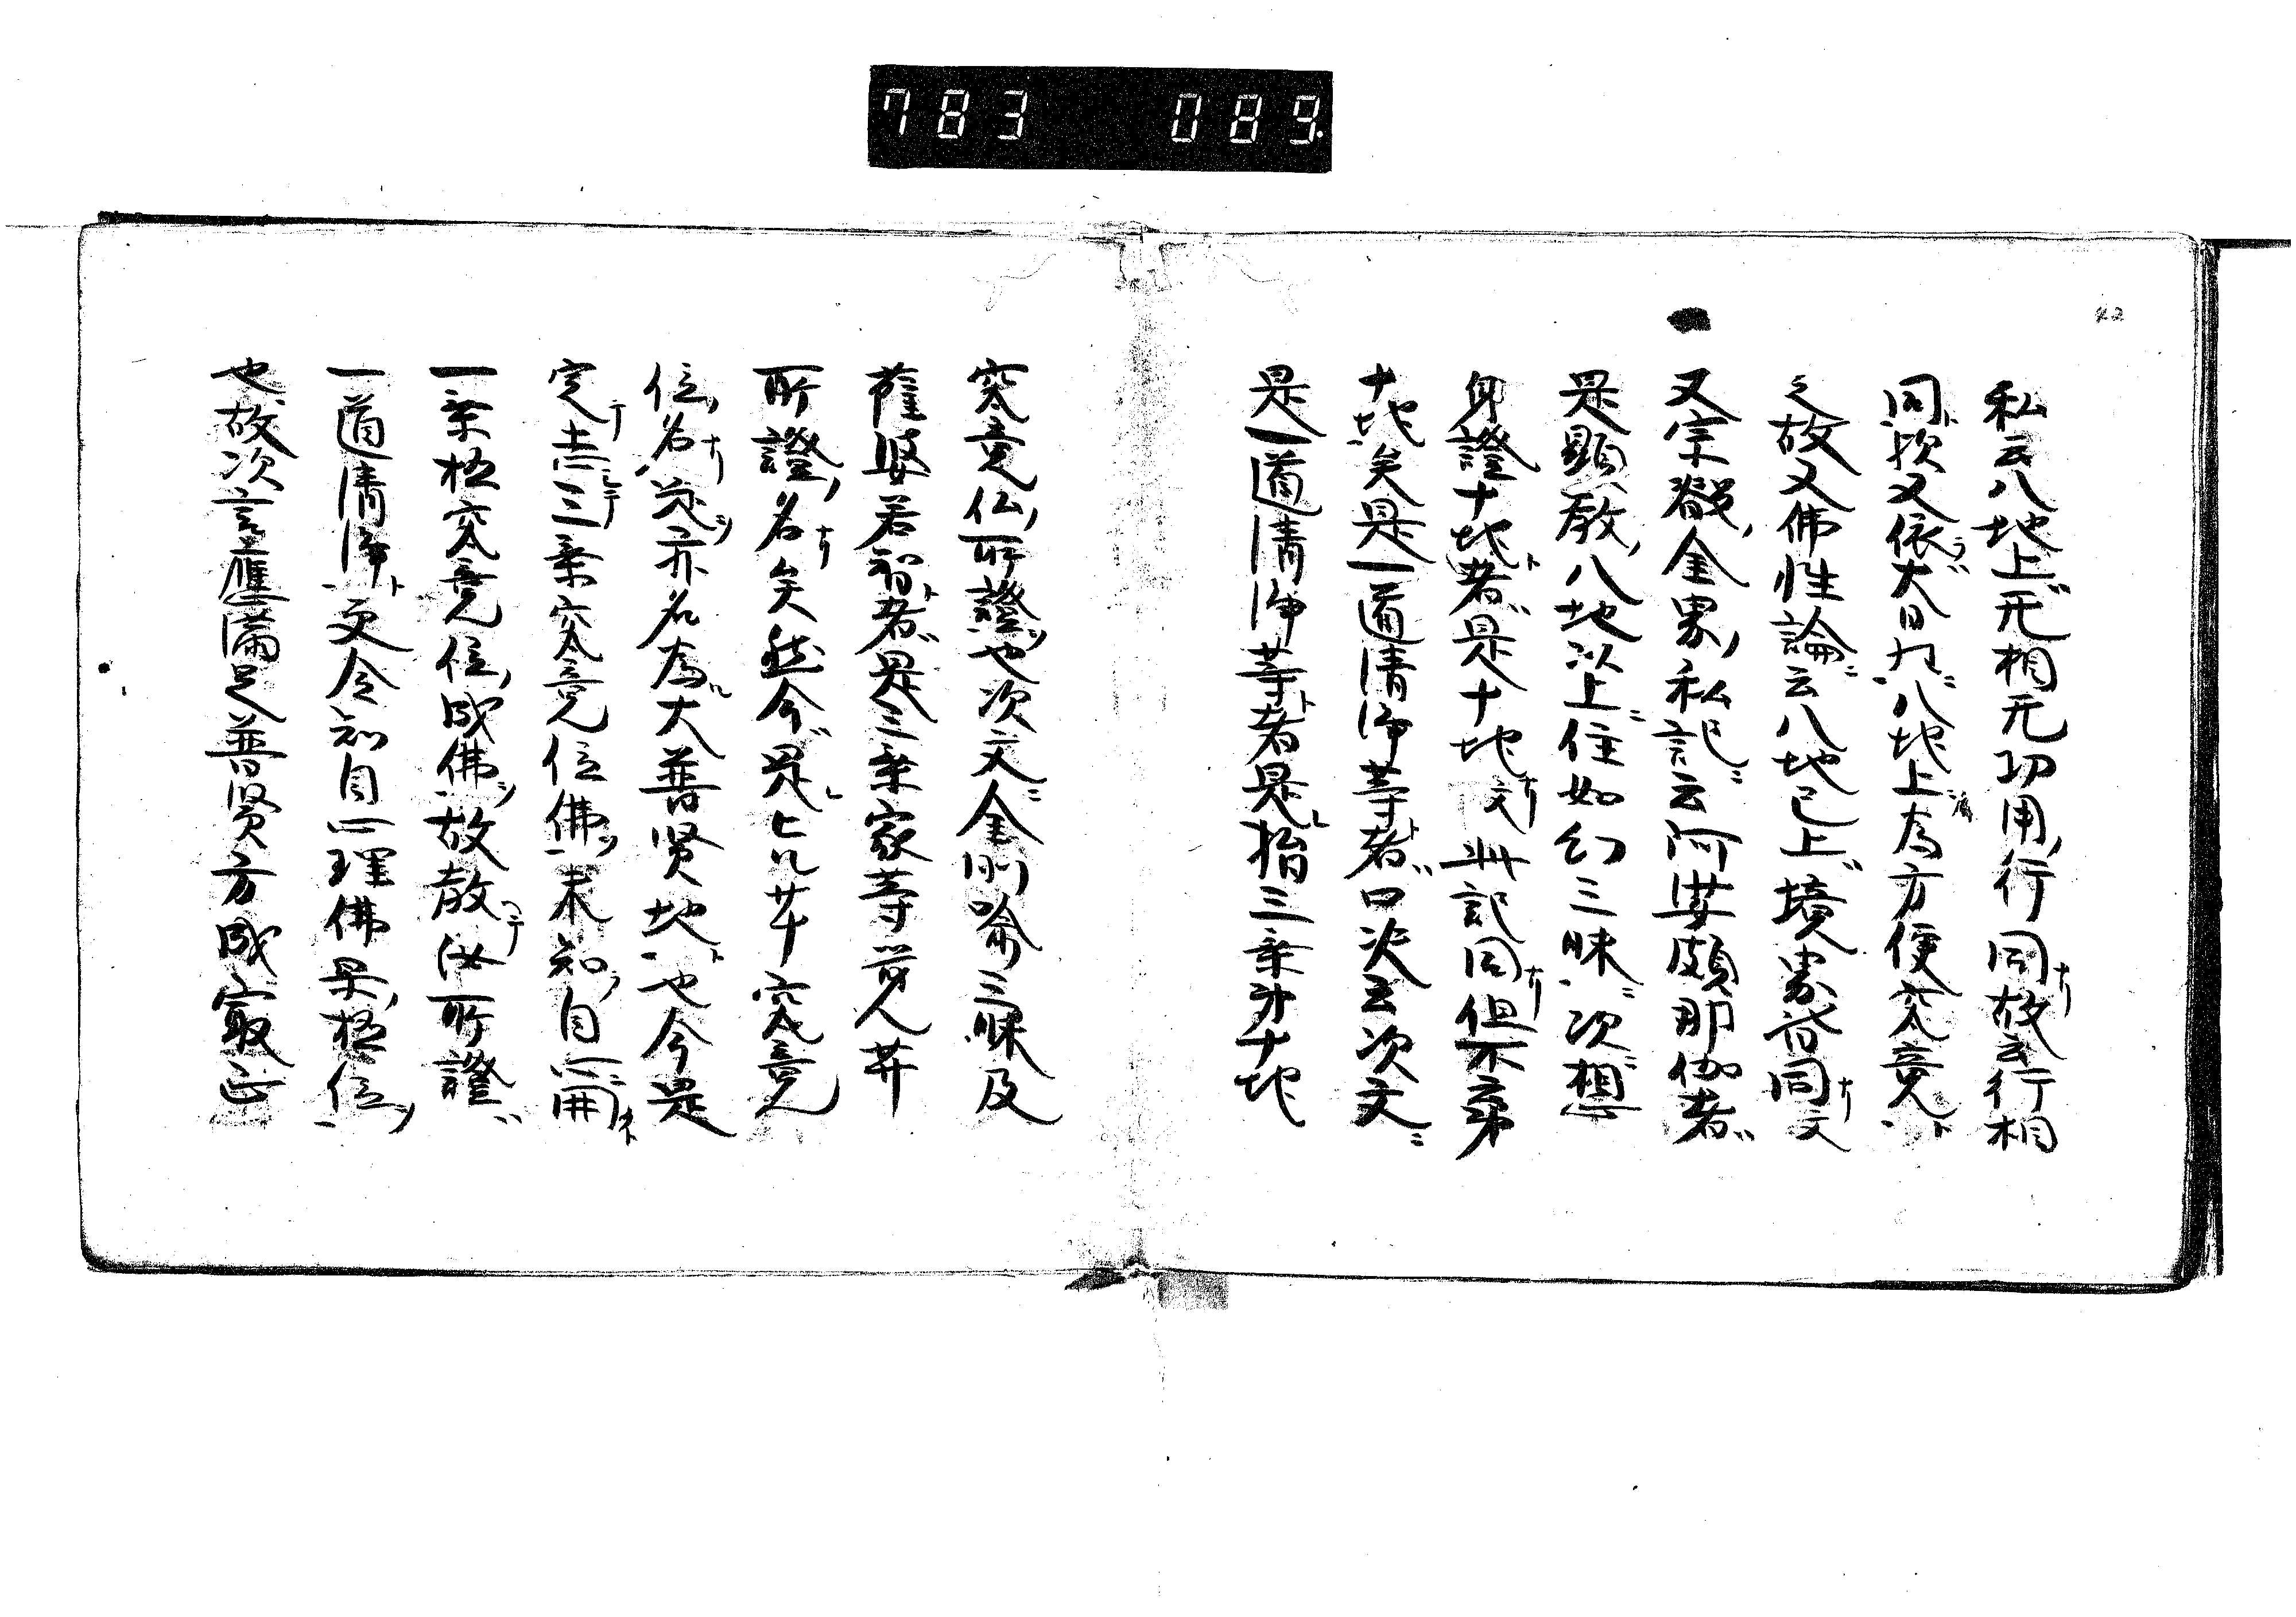 783 089.
42
私云八地上无相无功用行同故云行相
同欤又依大日九八地上為方便究竟
之故又佛性論云八地已上境界皆同文
一
又宗叡全界私記云阿娑頗那伽者
是顕教八地以上住如幻三昧次想
身證十地者是十地文 此記同但不第
十地矣是一道清浄等者口决云次文
是一道清浄等者是指三乗第十地
究竟仏所證也次文金剛喩三昧及
薩婆若智者是三乗家等覚人并
所證名矣然今是占只廾究竟
位名並亦名為大普贤地也今是
定志三乗究竟位佛未知自心開
一乗極究竟位成佛故教汝所證
一道清浄更令知自心理佛果極位
也故次言應满足普贤方成冣正